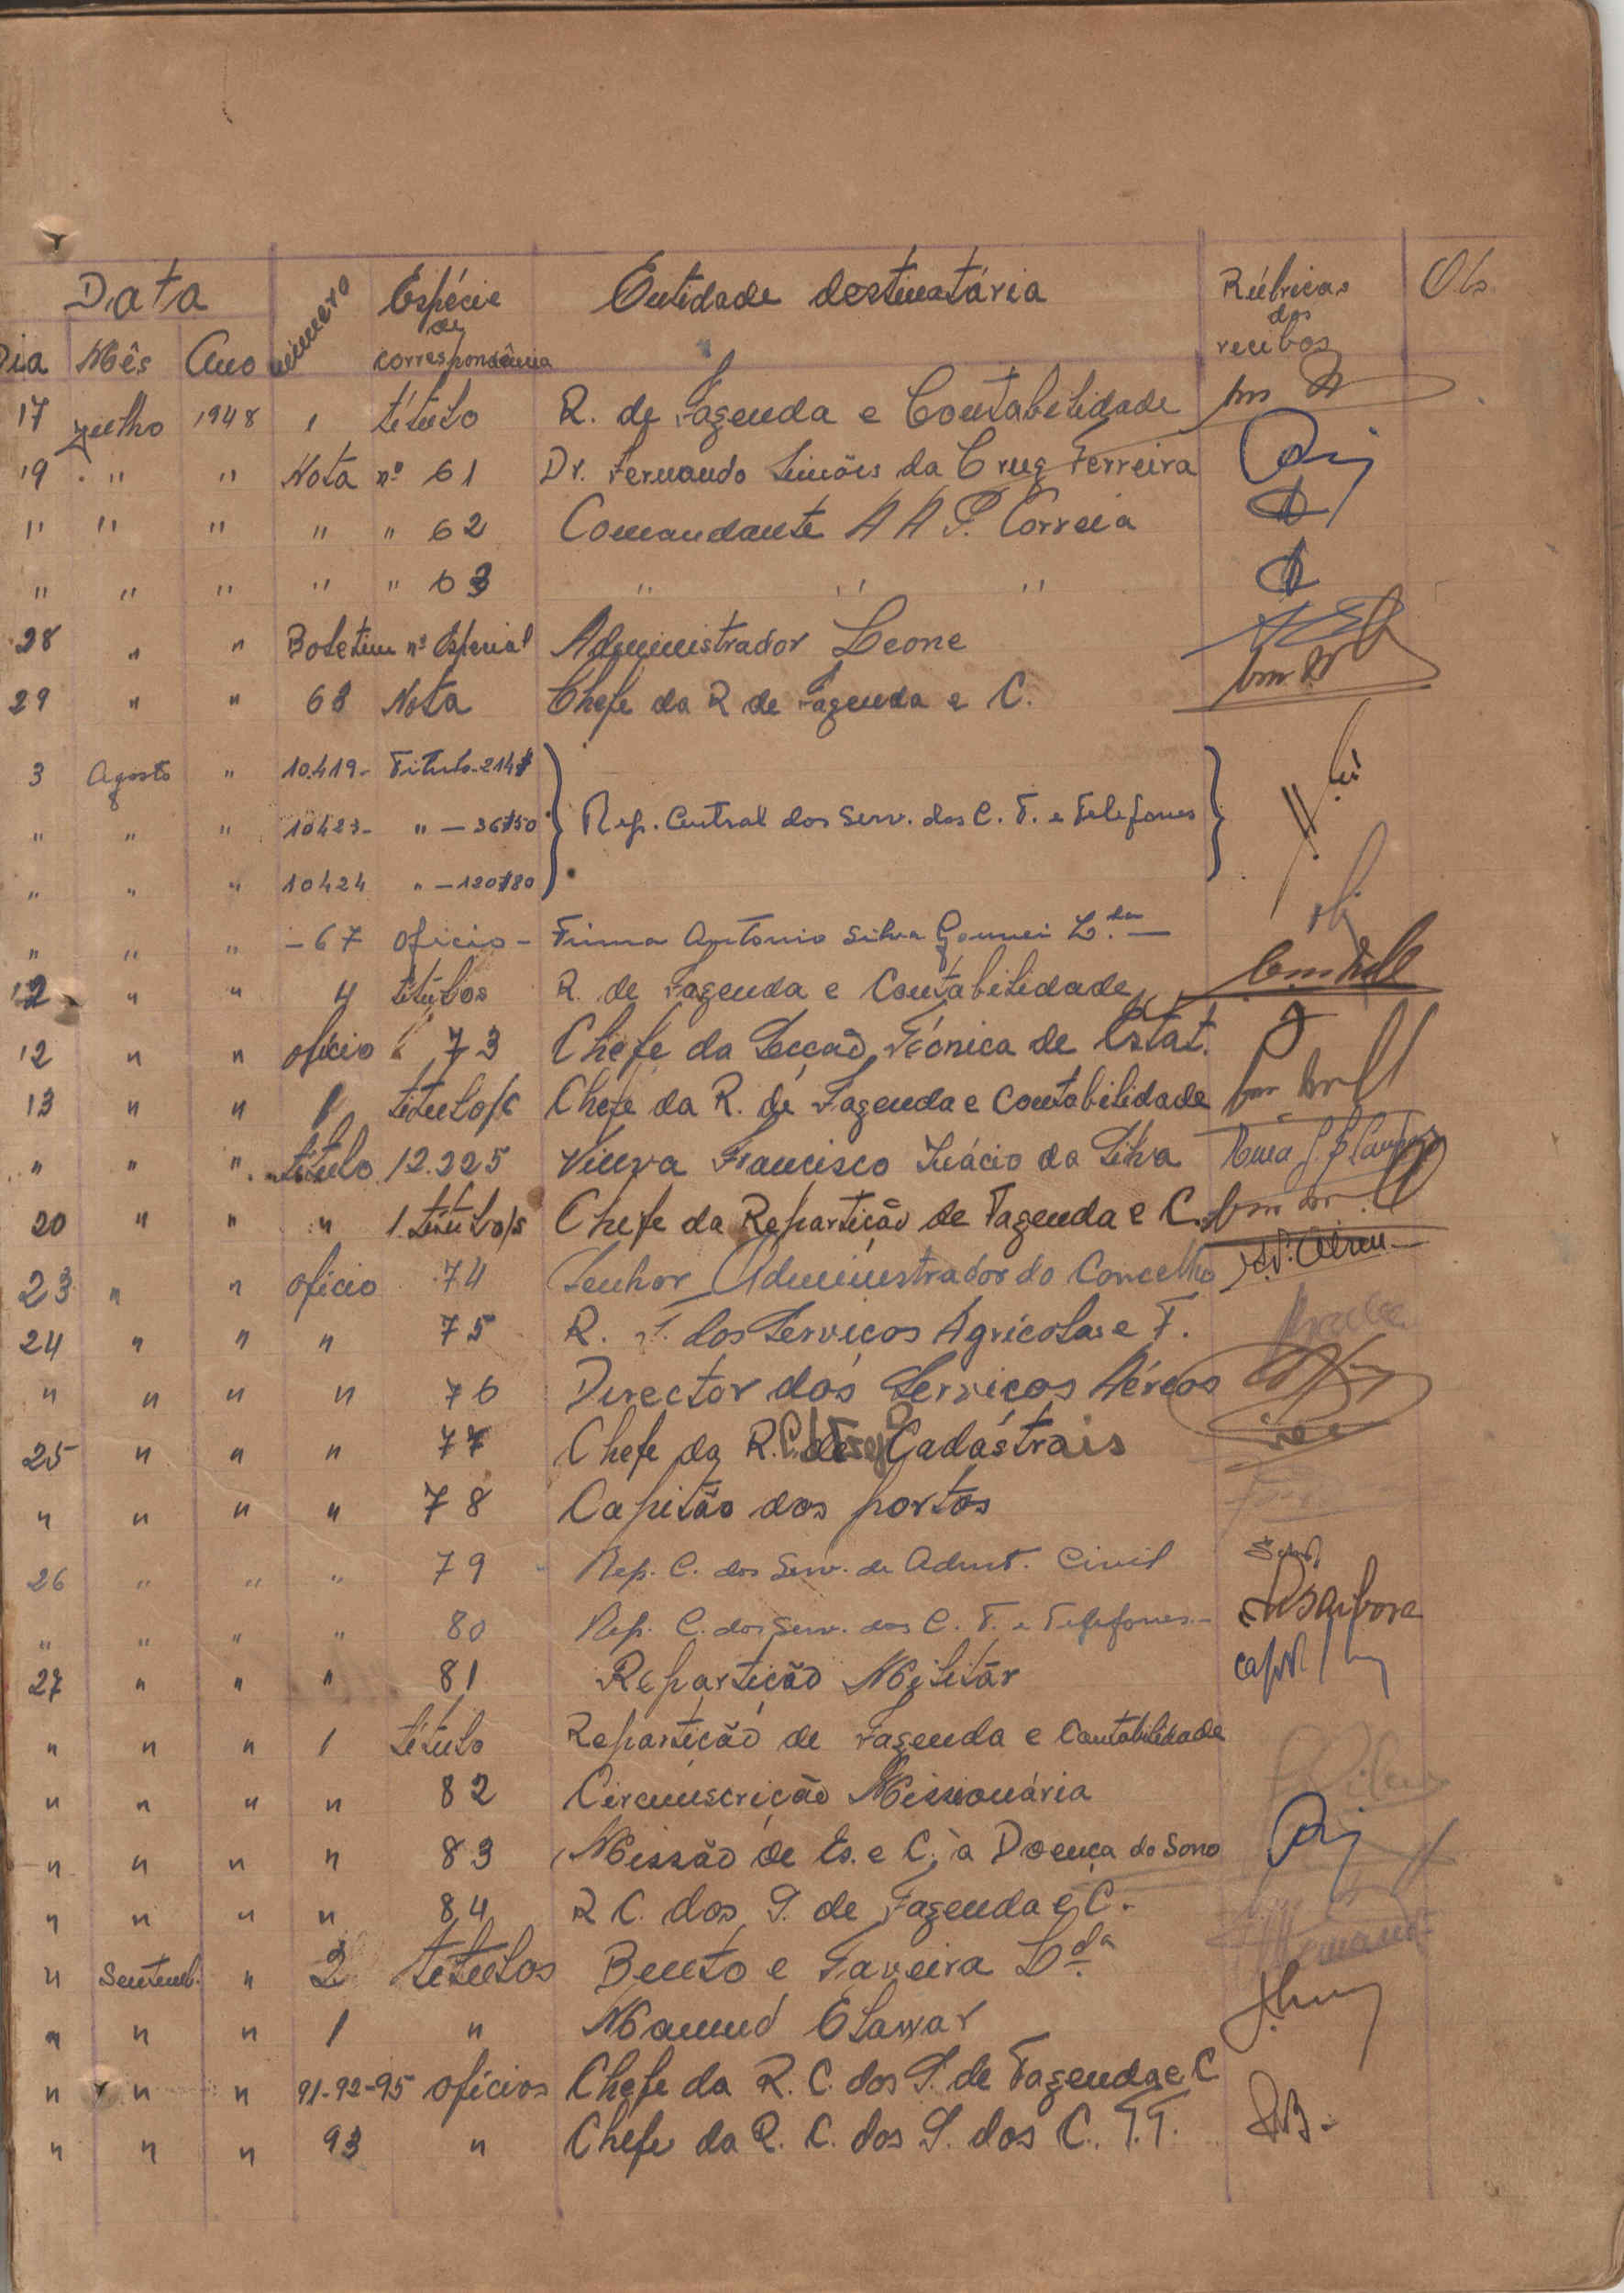 Data número Espécie de correspondência Entidade destinatária Rúbricas dos recibos Obs
Dia Mês Ano
17 Julho 1948 1 título R. de Fazenda e Contabilidade
19 " " Nota nº 61 Dr. Fernando Simões da Cruz Ferreira
" " " " " 62 Comandante A A P. Correia
" " " " " 63 " " "
28 " " Boletim nº Especial Administrador Leone
29 " " 68 Nota Chefe da R de Fazenda e C.
3 Agosto " 10.419- Titulo-214$
" " " 10423- " -36$50 Rep. Central dos Serv. dos C. T. e Telefones
" " " 10424 " -120$80
" " " -67 Oficio- Firma António Silva Gouveia L.da
12 " " 4 títulos R. de Fazenda e Contabilidade
12 " " ofício 73 Chefe da Secção Técnica de Estat.
13 " " 1 título/s Chefe da R. de Fazenda e Contabilidade
" " " título 12.225 Viuva Francisco Inácio da Silva
20 " " " 1 título/s Chefe da Repartição de Fazenda e C.
23 " " ofício 74 Senhor Administrador do Concelho
24 " " " 75 R. T. dos Serviços Agrícolas e F.
" " " " 76 Director dos Serviços Aéreos
25 " " " 77 Chefe da R. Cadástrais
" " " " 78 Capitão dos portos
26 " " " 79 Rep. C. dos Serv. de Admt. Civil
" " " " 80 Rep. C. dos Serv. dos C. T. e Telefones-
27 " " " 81 Repartição Militar
" " " 1 título Repartição de Fazenda e Contabilidade
" " " " 82 Circunscrição Missionária
" " " " 83 Missão de Es. e C. à Doença do Sono
" " " " 84 R C. dos S. de Fazenda e C.
" Setemb. " 2 títulos Bento e Taveira L.da
" " " 1 " Mamud Elawar
" " " 91-92-95 ofícios Chefe da R. C. dos S. de Fazenda e C
" " " 93 " Chefe da R. C. dos S. dos C. T.T.